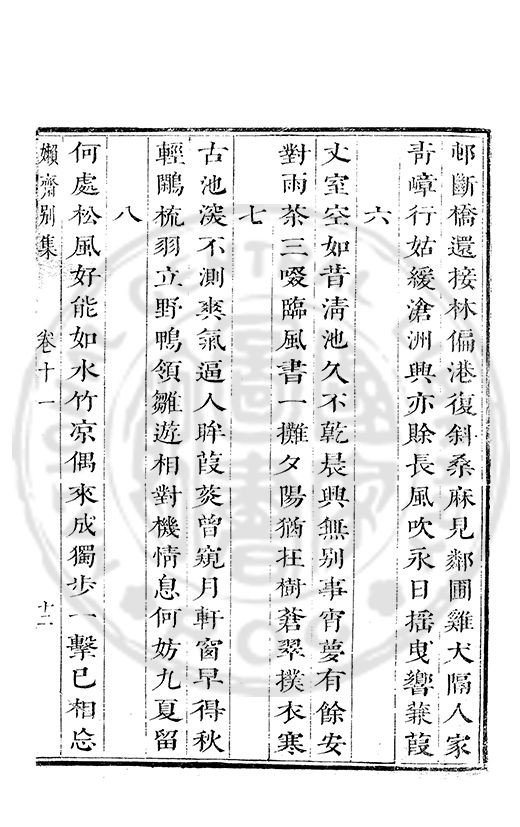 邨斷橋還接林偏港復斜桑麻見鄰圃雞犬隔人家
靑嶂行姑緩滄洲興亦賖長風吹永日揺曳響蒹葭
六
丈室空如昔淸池久不乾晨興無别事宵夢有餘安
對雨茶三啜臨風書一攤夕陽猶在樹蒼翠撲衣寒
七
古池深不測爽氣逼人眸葭菼曾窺月軒窗早得秋
輕鷳梳羽立野鴨領雛遊相對機情息何妨九夏留
八
何處松風好能如水竹凉偶來成獨步一擊已相忘
嬾齋别集
卷十一
十二